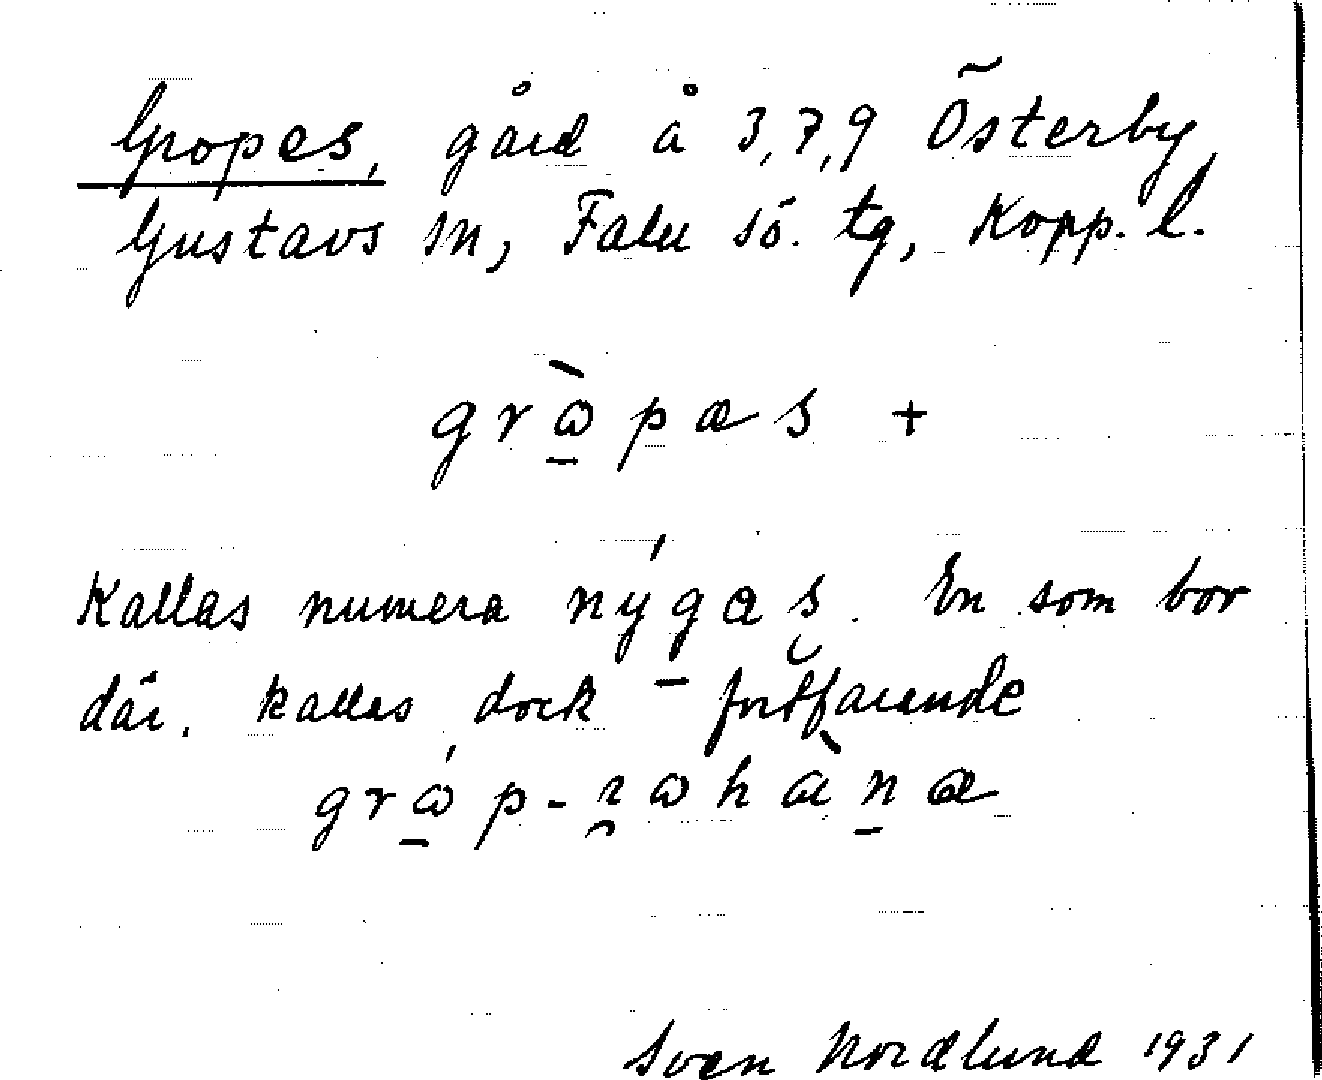 Gropes, gård å 3,7,9 Österby
Gustavs sn, Falu sö. tg, Kopp. l.
grὰ̱pæs +
Kallas numera nýgas. En som bor
där, kallas dock fortfarande
grá̱p-rahàṉæ
Sven Nordlund 1931